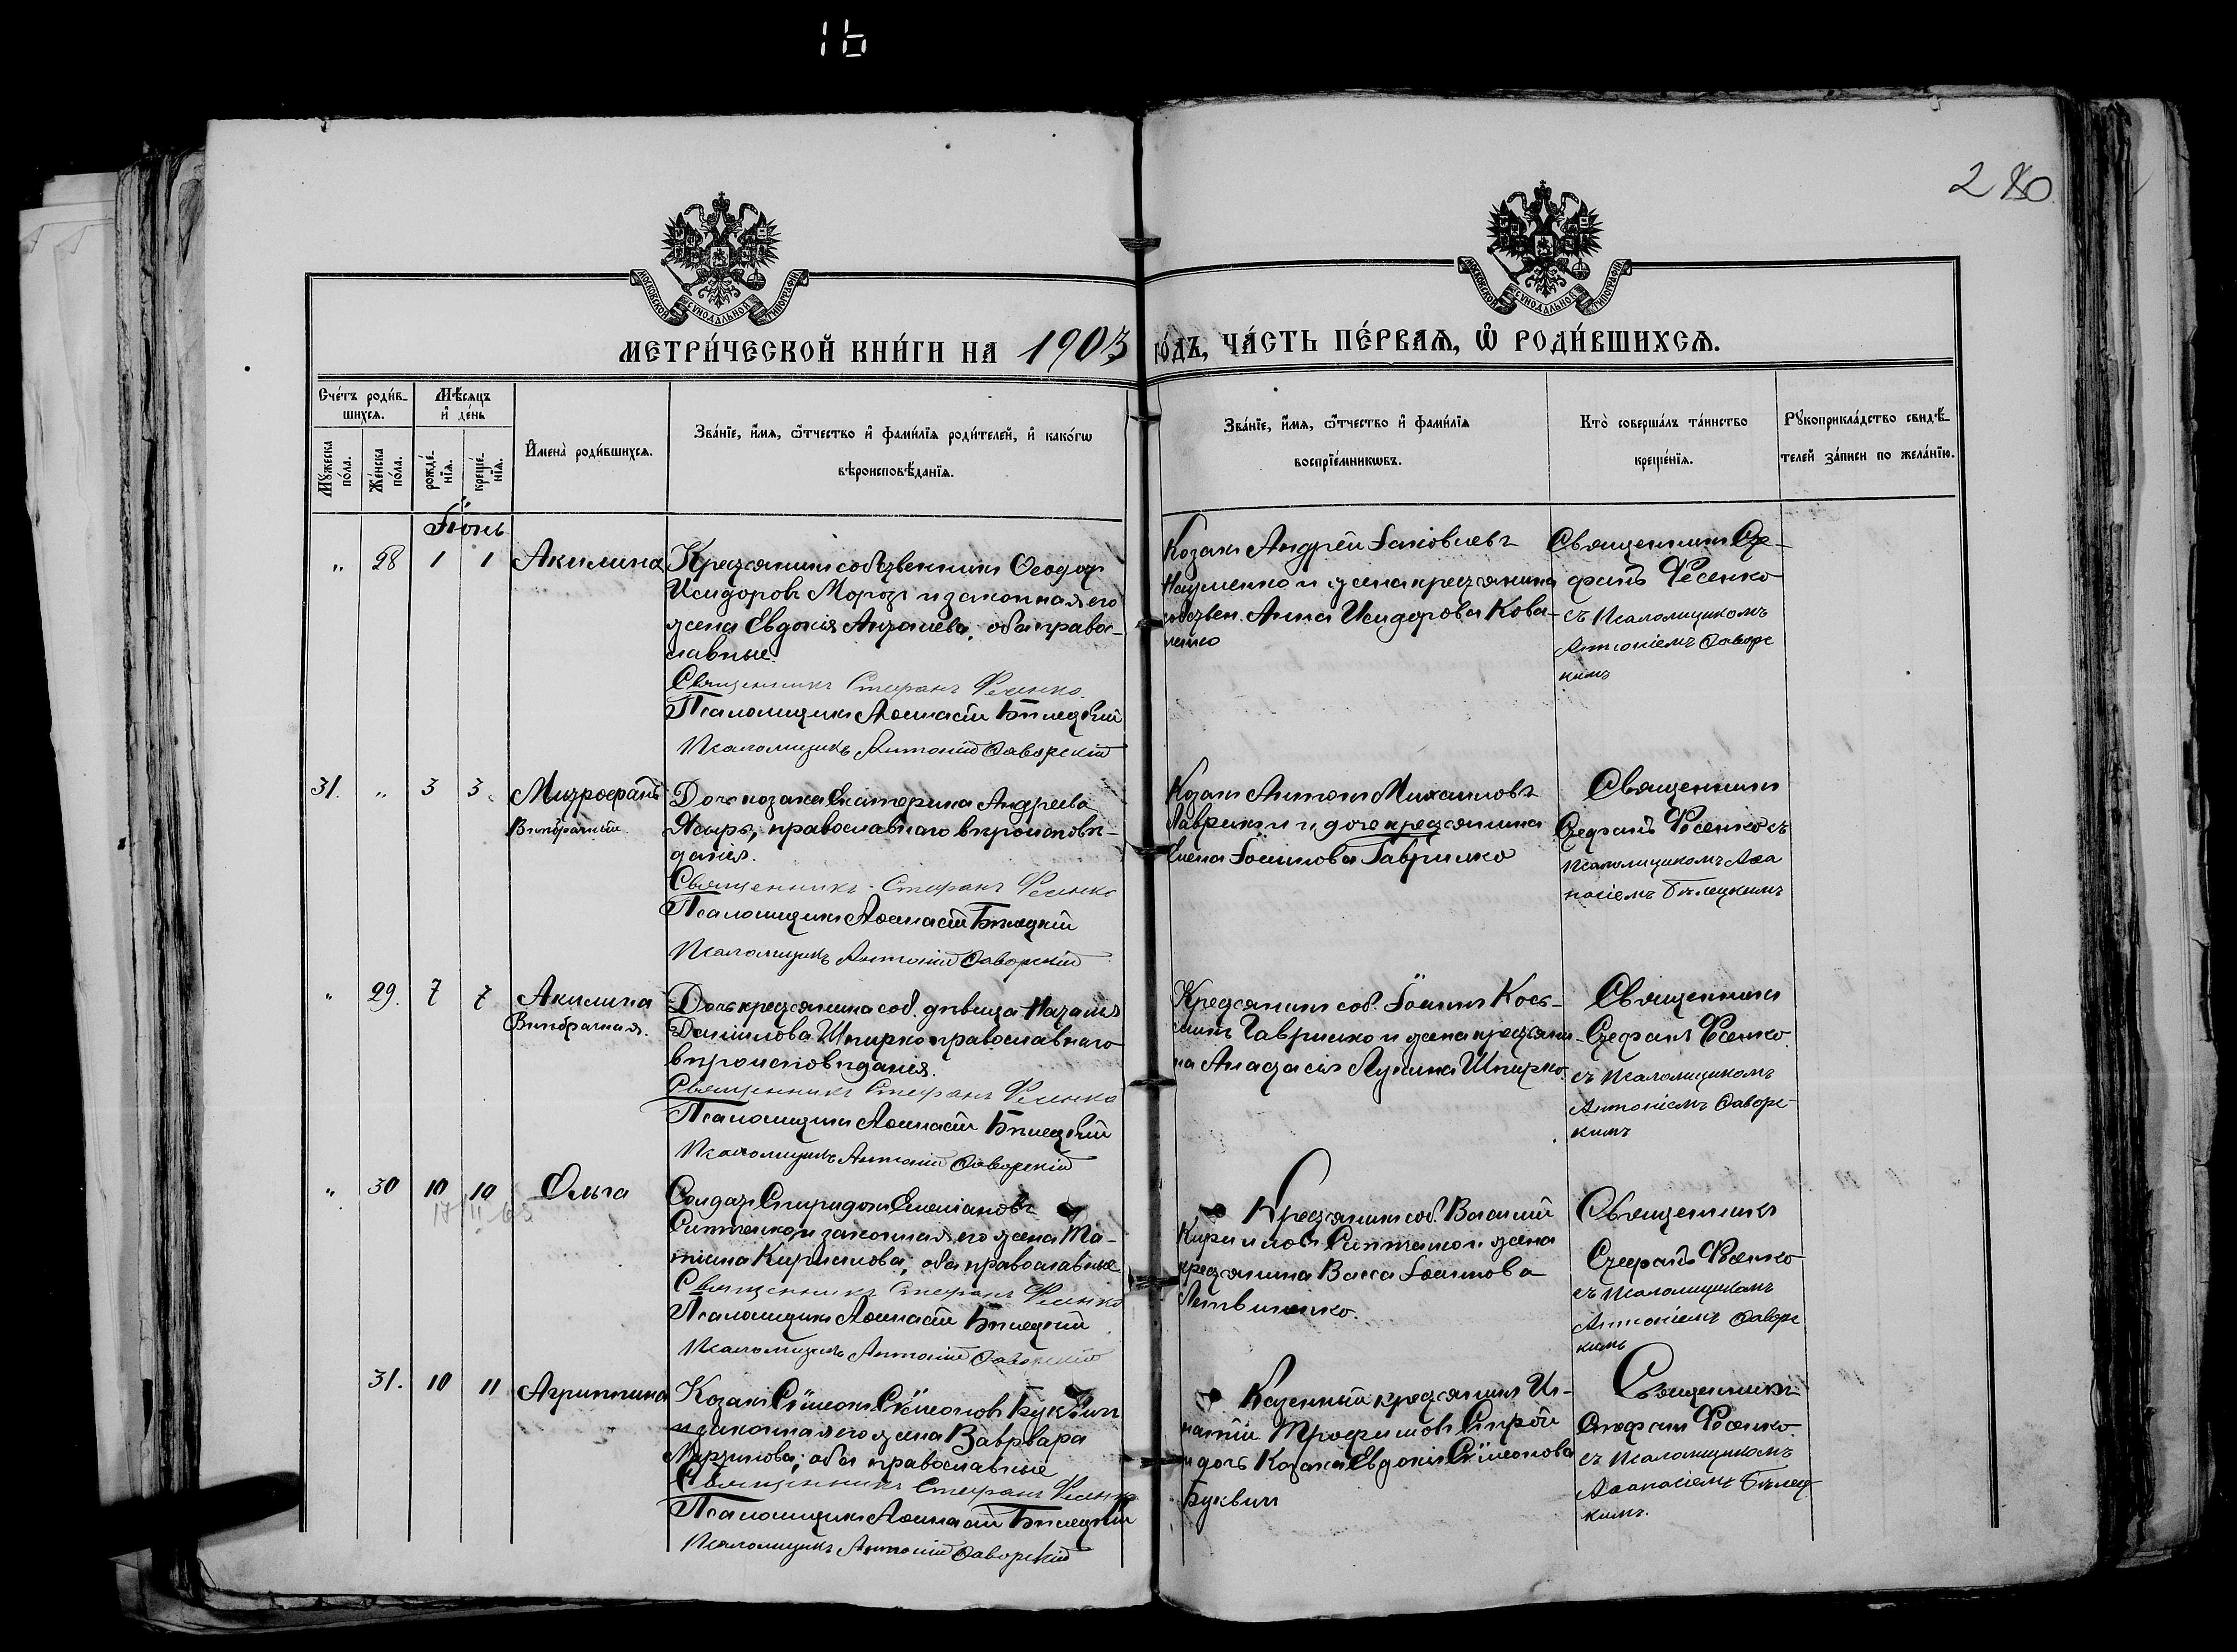 1б
280
МОСКОВСКОЙ СѴНОДАЛЬНОЙ ТИПОГРАФІИ
МОСКОВСКОЙ СѴНОДАЛЬНОЙ ТИПОГРАФІИ
МЕТРИ́ЧЕСКОЙ КНИ́ГИ НА 1903 ГО́ДЪ, ЧА́СТЬ ПЕ́РВАѦ, Ѿ РОДИ́ВШИХСѦ.
Сче́тъ роди́в-
шихся.
Мꙋ́жеска по́ла.
Же́нска по́ла.
Мѣ́сяцъ
и҆ де́нь
рожде́-
нїя.
креще́-
нїя.
И҆мена̀ роди́вшихся.
Зва́нїе, и҆́мя, ѻ҆́тчество и҆ фами́лїя роди́телей, и҆ како́гѡ
вѣроисповѣ́данїя.
Зва́нїе, и҆́мя, ѻ҆́тчество и҆ фами́лїя
воспрїе́мникѡвъ.
Кто̀ соверша́лъ та́инство
креще́нїя.
Рꙋкоприкла́дство свидѣ́-
телей за́писи по жела́нїю.
Іюнь
" 28 1 1 Акилина
Крестьянинъ собственникъ Ѳеодоръ
Исидоровъ Морозъ и законная его
жена Евдокія Антоніева, оба право-
славные.
Священникъ Стефанъ Фесенко
Псаломщикъ Аѳанасій Бѣлецкій
Псаломщикъ Антоній Яворскій
Козакъ Андрей Іаковлевъ
Науменко и жена крестьянина
собствен. Анна Исидорова Кова-
ленко
Священникъ Сте-
фанъ Фесенко
съ Псаломщикомъ
Антоніемъ Яворс
кимъ
31. " 3 3 Митрофанъ
Внѣбрачный
Дочь козака Екатерина Андреева
Ясыръ, православнаго вѣроисповѣ-
данія.
Священникъ Стефанъ Фесенко
Псаломщикъ Аѳанасій Бѣлецкій
Псаломщикъ Антоній Яворскій
Козакъ Антонъ Михаиловъ
Лаврикъ и дочь крестьянина
Елена Іоаннова Гаврилко
Священникъ
Стефанъ Фесенко съ
псаломщикомъ Аѳа
насіемъ Бѣлецкимъ
" 29. 7 7 Акилина
Внѣбрачная.
Дочь крестьянина соб. дѣвица Наталія
Даніилова Шпирко православнаго
вѣроисповѣданія.
Священникъ Стефанъ Фесенко
Псаломщикъ Аѳанасій Бѣлецкій
Псаломщикъ Антоній Яворскій
Крестьянинъ соб. Іоаннъ Кось-
минъ Гаврилко и жена крестьяни-
на Анастасія Лукина Шпирко.
Священникъ
Стефанъ Фесенко
съ Псаломщикомъ
Антоніемъ Яворс-
кимъ
" 30 10 10 Ольга
Солдатъ Спиридонъ Емеліановъ
Ситенко и законная его жена Та-
тіана Кириллова, оба православные
Священникъ Стефанъ Фесенко
Псаломщикъ Аѳанасій Бѣлецкій
Псаломщикъ Антоній Яворскій
Крестьянинъ соб. Василій
Кирилловъ Ситенко и жена
крестьянина Васса Іоаннова
Литвиненко.
Священникъ
Стефанъ Фесенко
съ Псаломщикомъ
Антоніемъ Яворс
кимъ
31. 10 11 Агриппина
Козакъ Сѷмеонъ Сѷмеоновъ Буквинъ
и законная его жена Варвара
Мартинова, оба православные
Священникъ Стефанъ Фесенко
Псаломщикъ Аѳанасій Бѣлецкій
Псаломщикъ Антоній Яворскій
Казенный крестьянинъ Иг-
натій Трофимовъ Сирый
и дочь Козака Евдокія Сѷмеонова
Буквинъ
Священникъ
Стефанъ Фесенко.
съ Псаломщикомъ
Аѳанасіемъ Бѣлец-
кимъ.